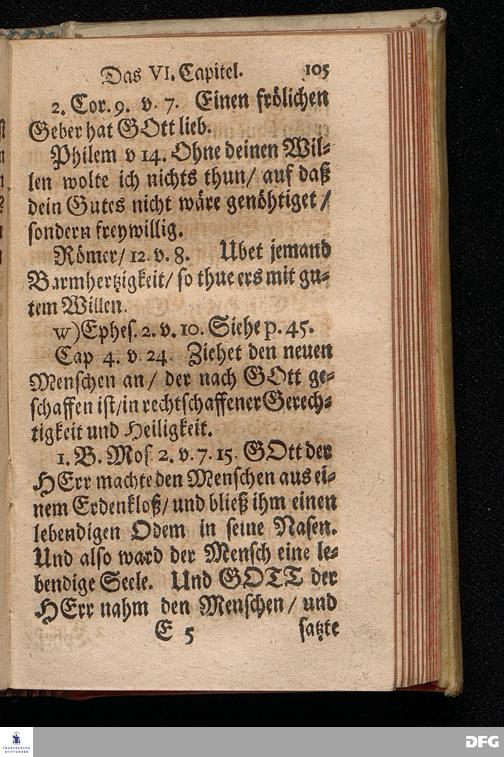 Das VI. Capitel. 105
2. Cor. 9. v. 7. Einen frölichen
Geber hat GOtt lieb.
Philem v 14. Ohne deinen Wil-
len wolte ich nichts thun/ auf daß
dein Gutes nicht wäre genöhtiget/
sondern freywillig.
Römer/ 12. v. 8. Ubet jemand
Barmhertzigkeit/ so thue ers mit gu-
tem Willen.
w) Ephes. 2. v. 10. Siehe p. 45.
Cap 4. v. 24. Ziehet den neuen
Menschen an/ der nach GOtt ge-
schaffen ist/ in rechtschaffener Gerech-
tigkeit und Heiligkeit.
1. B. Mos. 2. v. 7. 15. GOtt der
HErr machte den Menschen aus ei-
nem Erdenkloß/ und bließ ihm einen
lebendigen Odem in seine Nasen.
Und also ward der Mensch eine le-
bendige Seele. Und GOTT der
HErr nahm den Menschen/ und
E 5 satzte
FRANCKESCHE
STIFTUNGEN
DFG